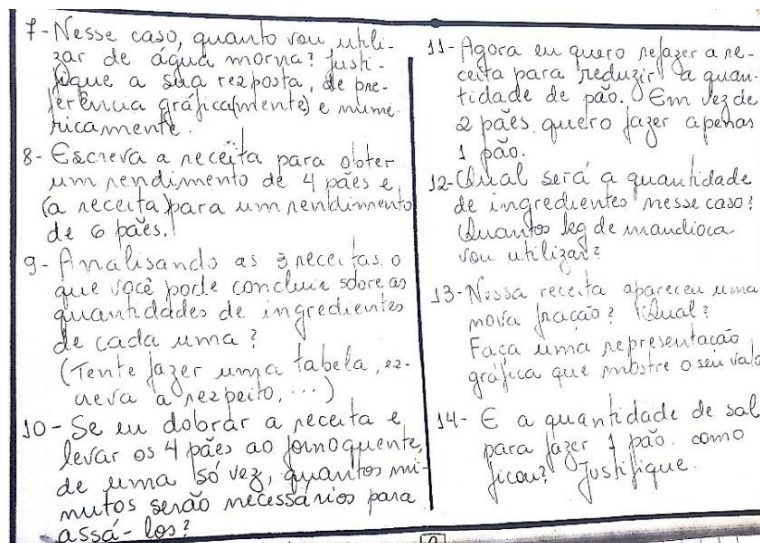 7-Nesse caso, quanto vou utili-
zar de água morna? Justi-
fique a sua resposta, de pre-
ferência gráfica(mente) e nume-
ricamente.
8- Escreva a receita para obter
um rendimento de 4 pães e
(a receita) para um rendimento
de 6 pães.
9- Analisando as 3 receitas o
que você pode concluir sobre as
quantidades de ingredientes
de cada uma?
(Tente fazer uma tabela, es-
creva a respeito, ...)
10- Se eu dobrar a receita e
levar os 4 pães ao forno quente,
de uma só vez, quantos mi-
nutos serão necessários para
assá-los?
11- Agora eu quero refazer a re-
ceita para reduzir a quan-
tidade de pão. Em vez de
2 pães, quero fazer apenas
1 pão.
12- Qual será a quantidade
de ingredientes nesse caso?
Quantos kg de mandioca
vou utilizar?
13- Nessa receita apareceu uma
nova fração? Qual?
Faça uma representação
gráfica que mostre o seu valo
14- E a quantidade de sal
para fazer 1 pão. como
ficou? Justifique.